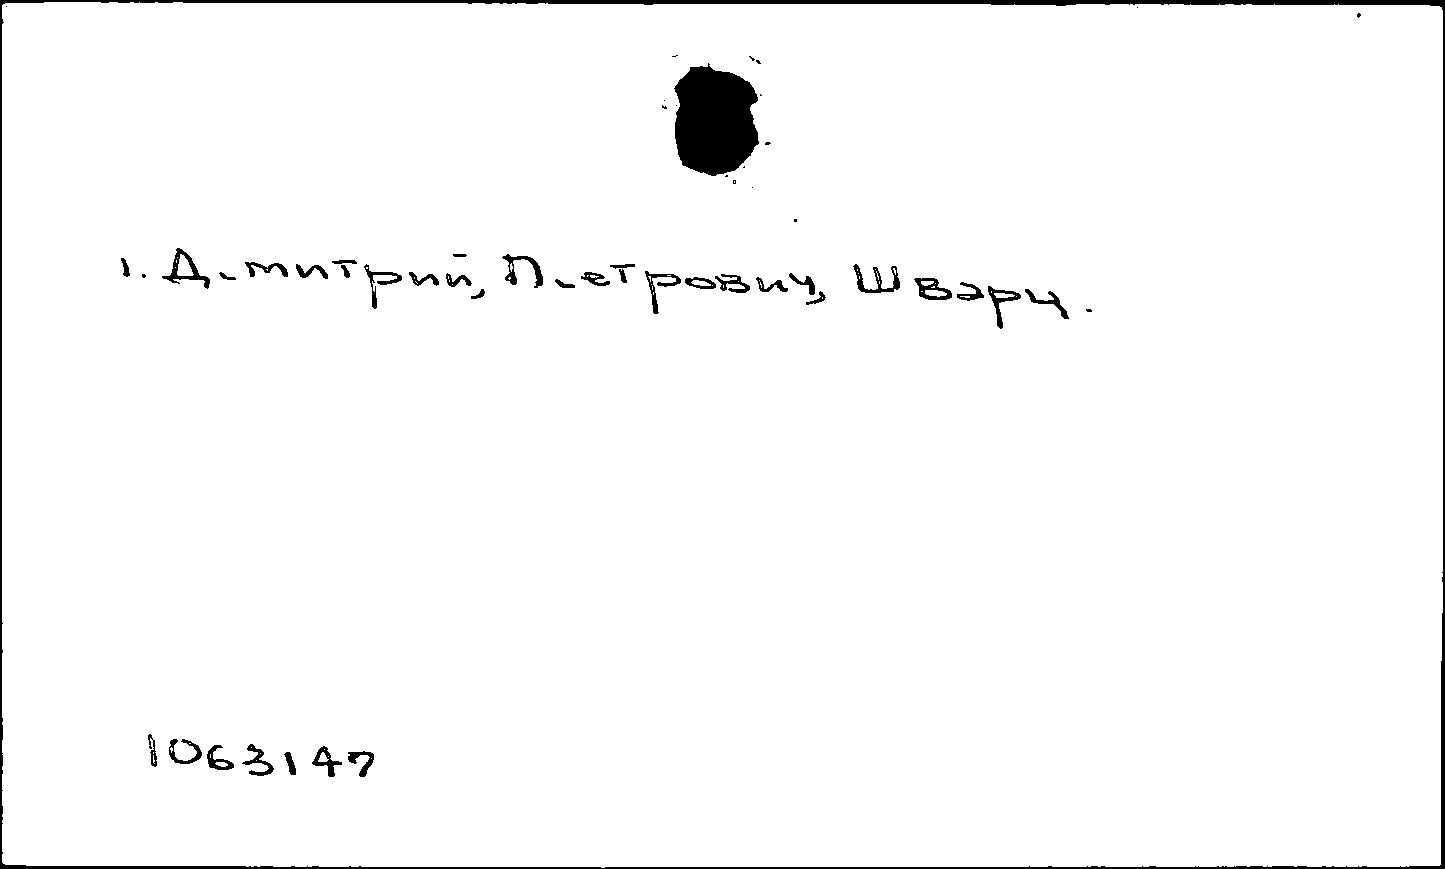 1. Дмитрий, Петрович, Шварц.
1063147